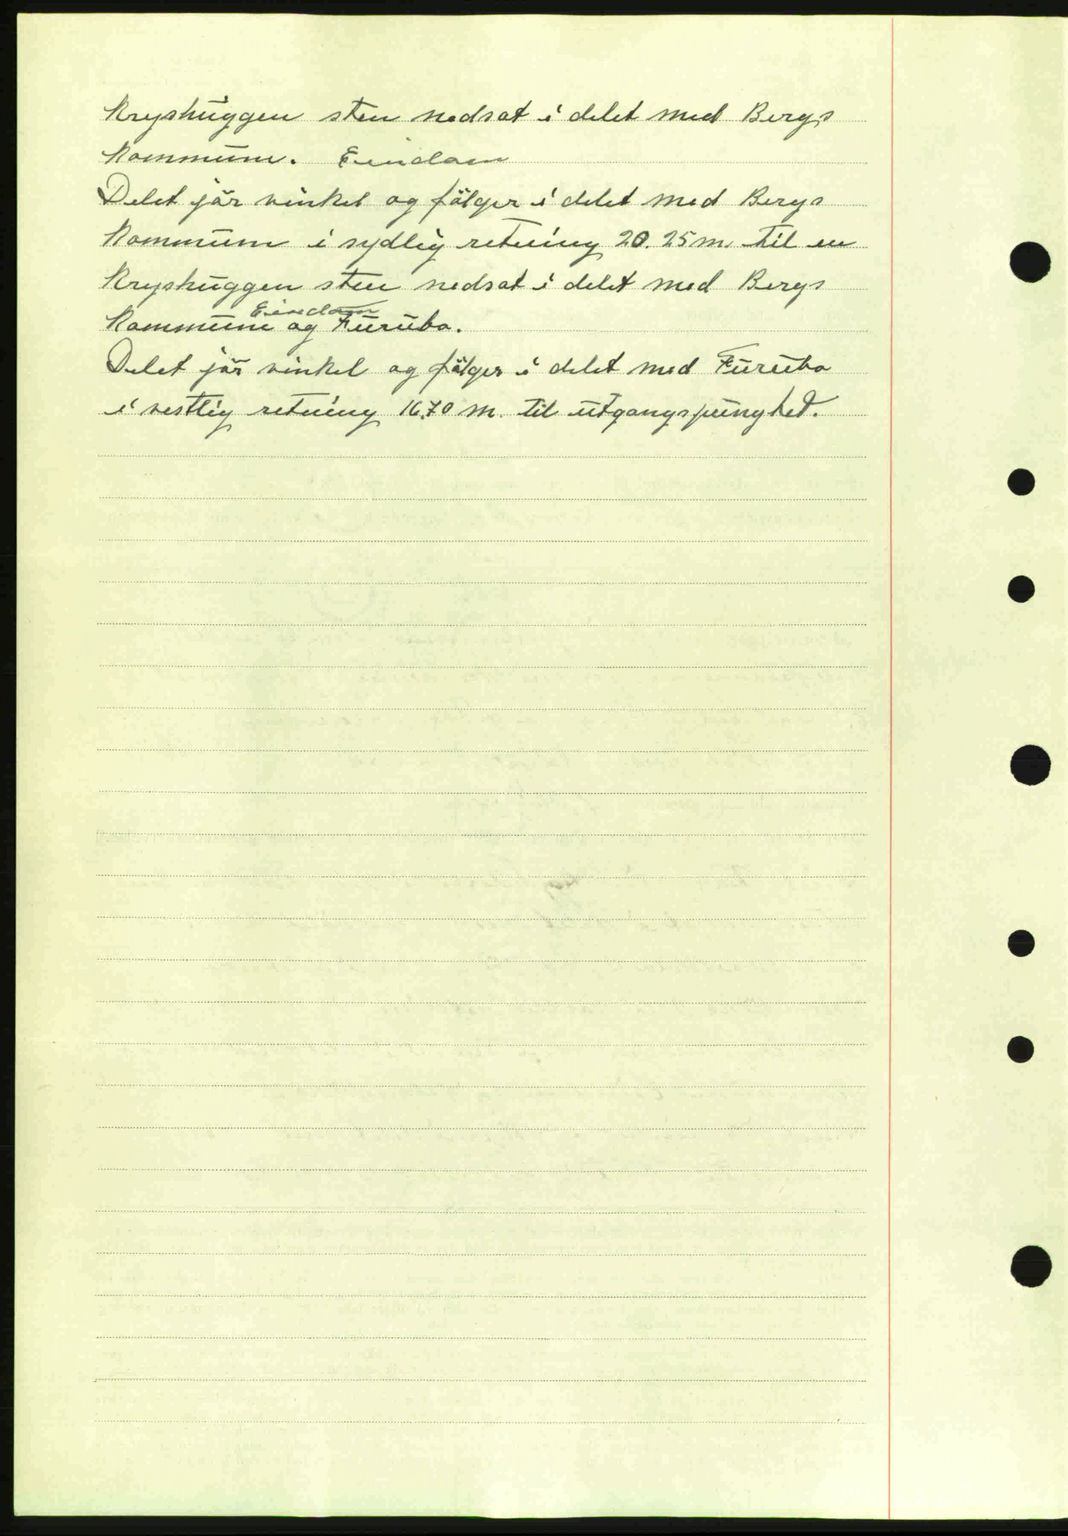 Kryshuggen sten nedsat i delet med Bergs
Kommune. Eiendom
Delet jör vinkel og fölger i delet med Bergs
Kommune i sydlig retning 20.25 m. til en
Kryshuggen sten nedsat i delet med Bergs
Eiendom
Kommune og Furubo.
Delet jör vinkel og fölger i delet med Furubo
i vestlig retning 16.70 m. til utgangspunghet.